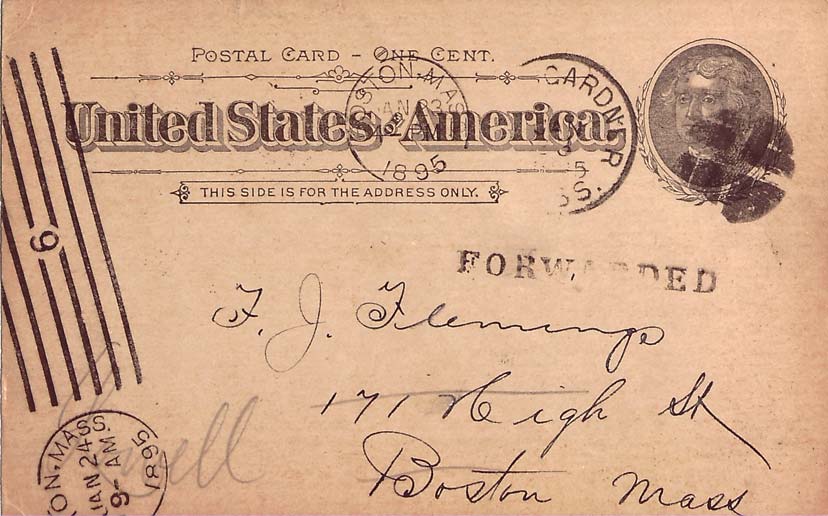 POSTAL CARD - ONE CENT.
United States of America
THIS SIDE IS FOR THE ADDRESS ONLY.
OSTON, MA
JAN 23
PM
1895
GARDNER
5
SS.
FORWARDED
F. J. Flemings
171 High St
Boston Mass
9
TON, MASS.
JAN 24
9 - AM.
1895